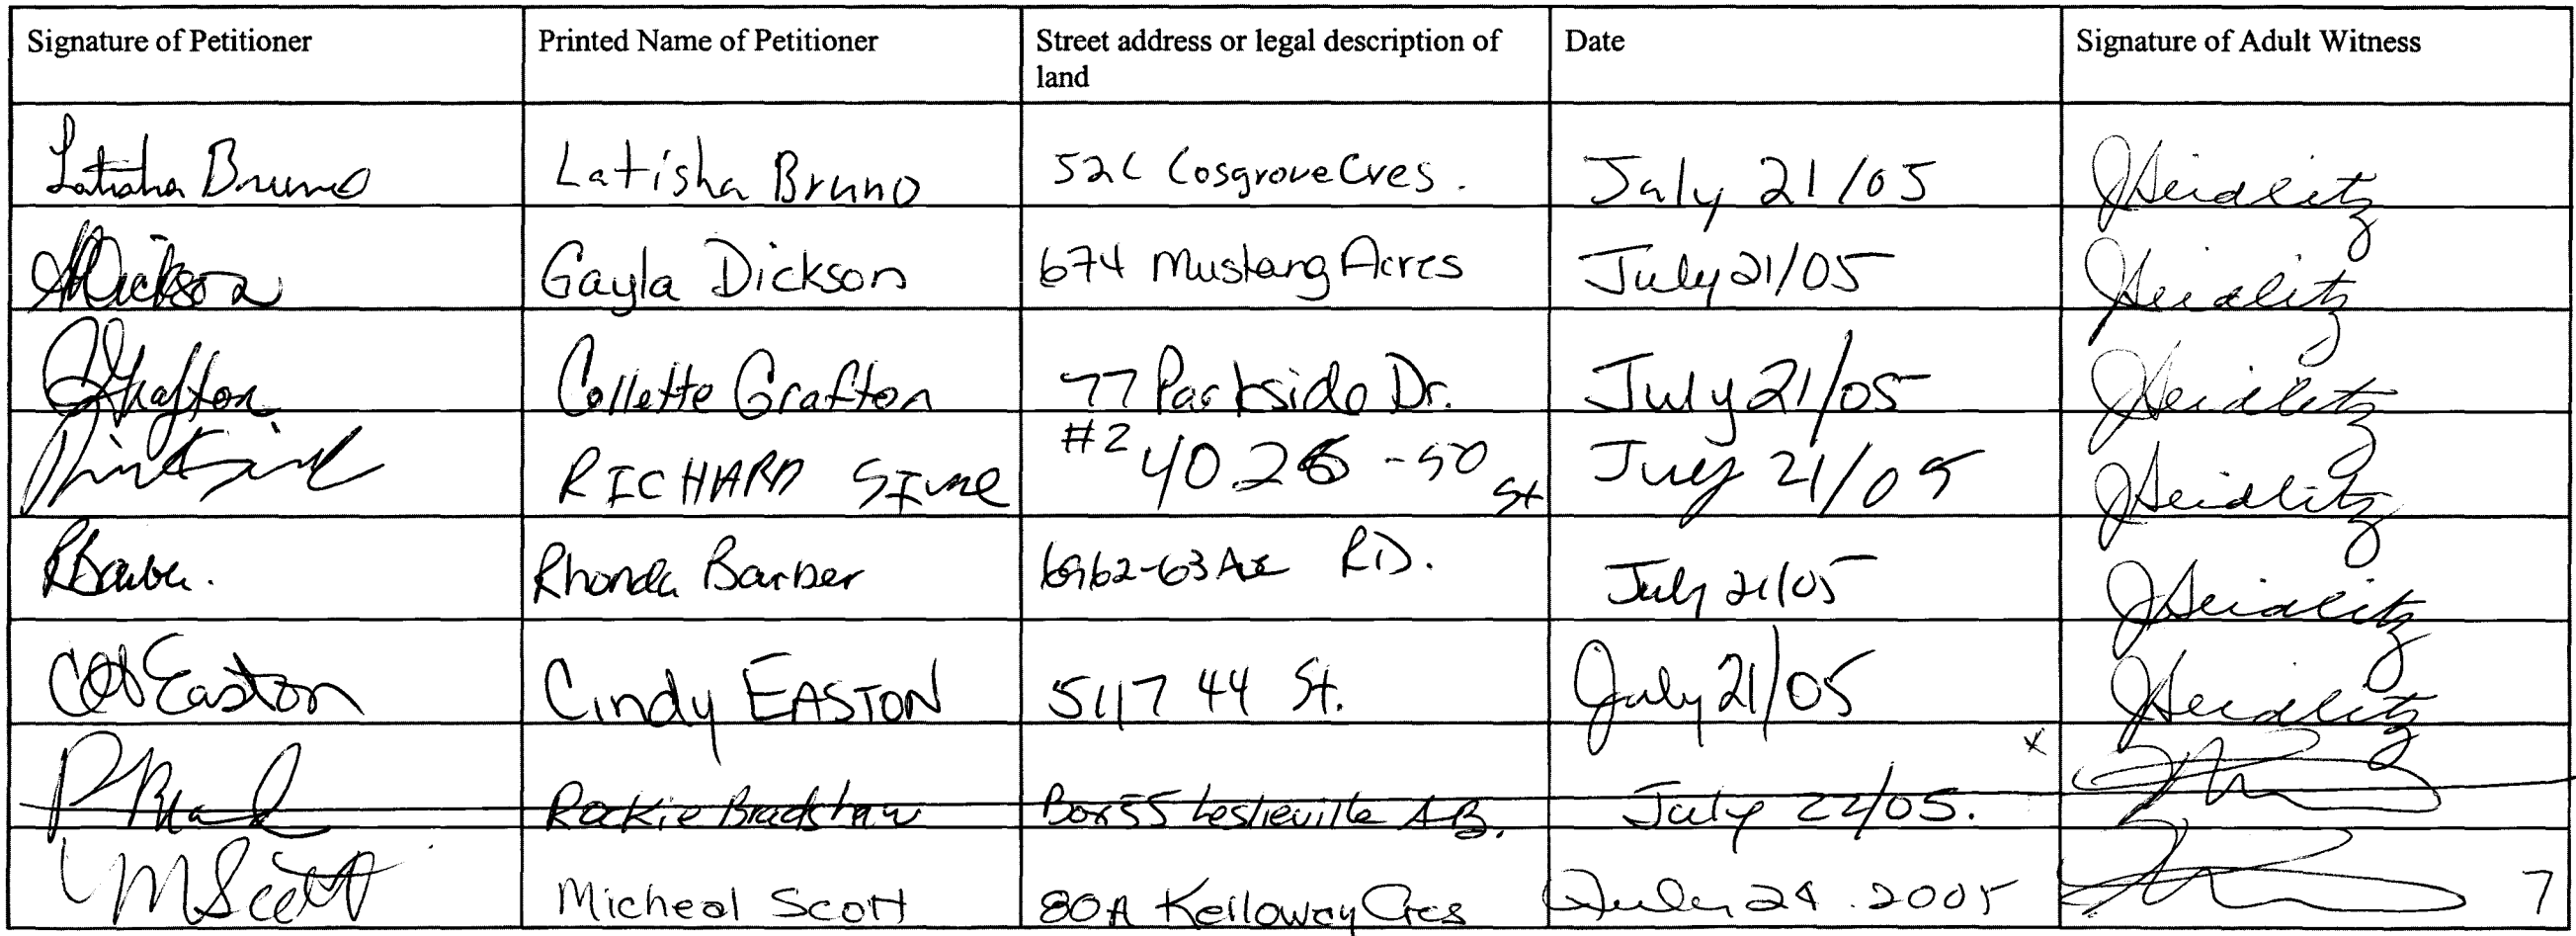 Signature of Petitioner Printed Name of Petitioner Street address or legal description of land Date Signature of Adult Witness
Latisha Bruno Latisha Bruno 52C Cosgrove Cres. July 21/05 JSeidlitz
Dickson Gayla Dickson 674 Mustang Acres July 21/05 JSeidlitz
Grafton Collette Grafton 77 Parkside Dr. July 21/05 JSeidlitz
RICHARD #2 4026 -50 St July 21/05 JSeidlitz
RBarber. Rhonda Barber 6962-63 Ave RD. July 21/05 JSeidlitz
Easton Cindy EASTON 5117 44 St. July 21/05 JSeidlitz
x
Rockie Bradshaw Box 55 Leslieville AB. July 22/05.
M Scott Micheal Scott 80A Kelloway Cres July 24. 2005 7